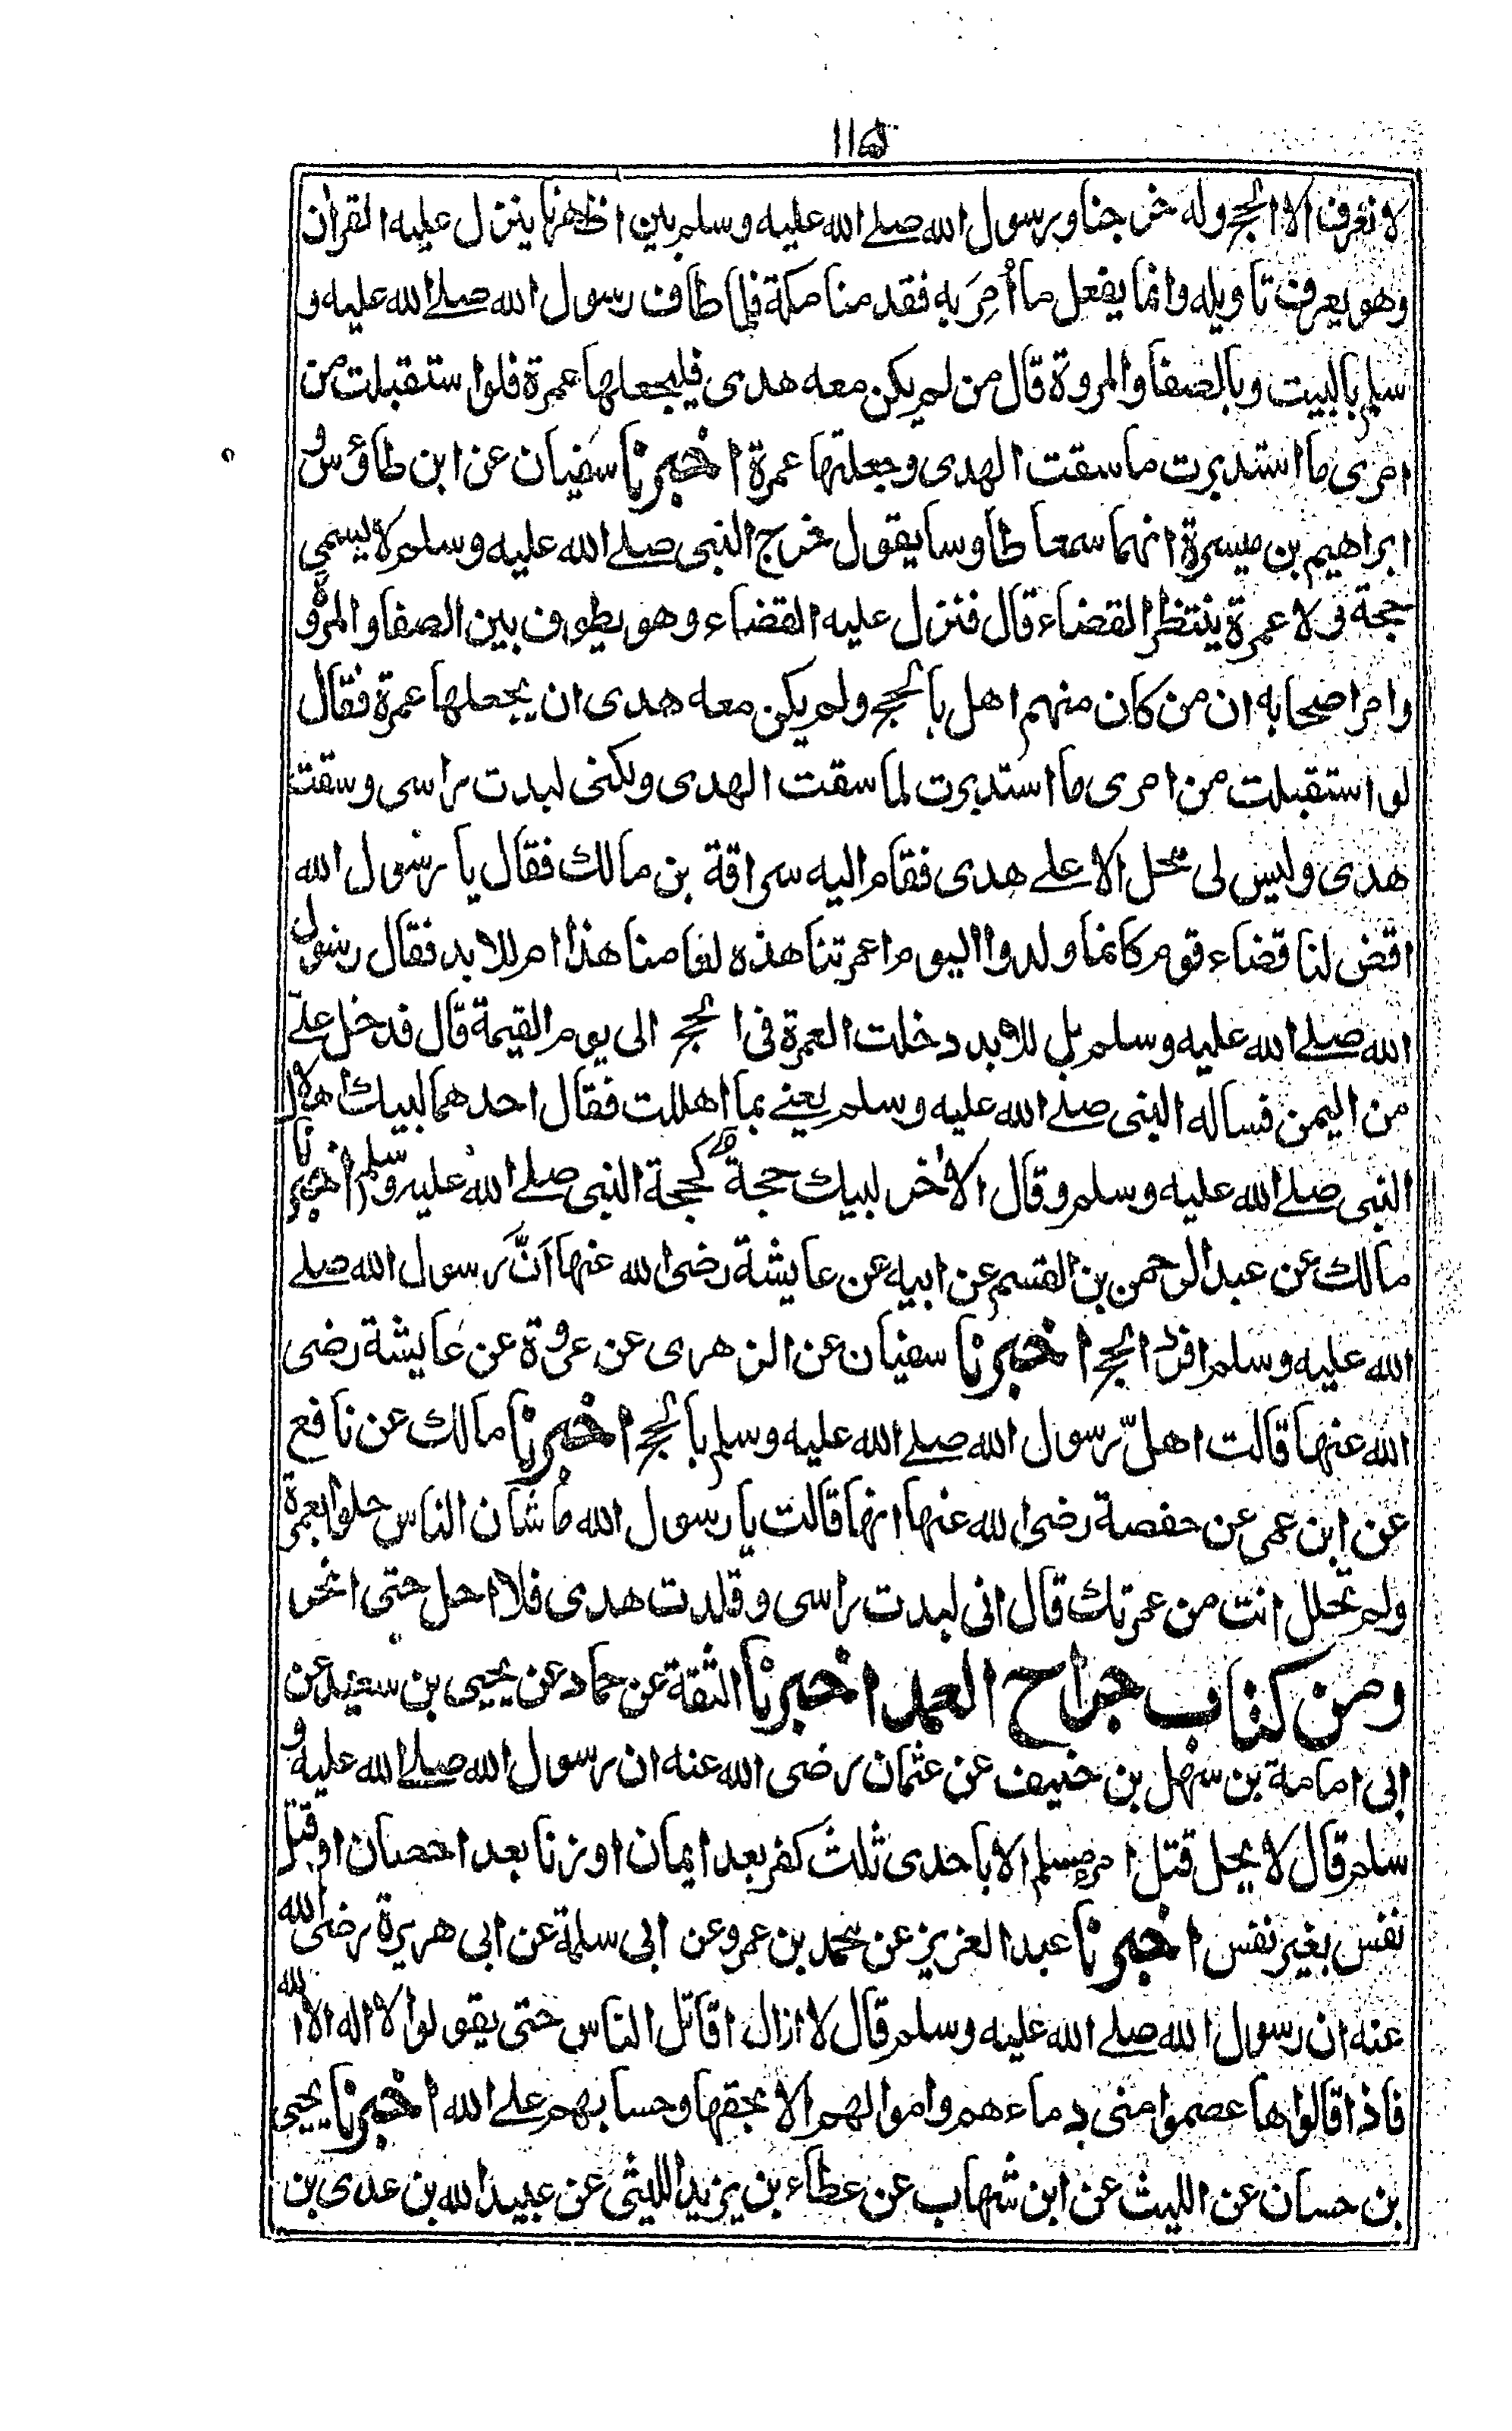 ١١۵
لا نعرف الا الحج وله خرجنا ورسول الله صلے الله عليه وسلم بين اظهرنا ينزل عليه القرأن
وهو يعرف تاويله وانما يفعل ما أُمِرَ به فقدمنا مكة فلما طاف رسول الله صلے الله عليه و
سلم بالبيت وبالصفا والمروة قال من لم يكن معه هدى فليجعلها عمرة فلو استقبلت من
امرى ما استدبرت ما سقت الهدى وجعلتها عمرة اخبرنا سفيان عن ابن طاؤس و
ابراهيم بن ميسرة انهما سمعا طاوسا يقول خرج النبى صلے الله عليه وسلم لا يسمى
حجة ولا عمرة ينتظر القضاء قال فنزل عليه القضاء وهو يطوف بين الصفا والمروة
وامر اصحابه ان من كان منهم اهل بالحج ولم يكن معه هدى ان يجعلها عمرة فقال
لو استقبلت من امرى ما استدبرت لما سقت الهدى ولكنى لبدت راسى وسقت
هدى وليس لى محل الا علے هدى فقام اليه سراقة بن مالك فقال يا رسول الله
اقض لنا قضاء قوم كانما ولدوا اليوم اعمرتنا هذه لعامنا هذا ام للابد فقال رسول
الله صلے الله عليه وسلم بل للابد دخلت العمرة فى الحج الى يوم القيمة قال فدخل علے
من اليمن فساله النبى صلے الله عليه وسلم يعنے بما اهللت فقال احدهما لبيك اهلال
النبى صلے الله عليه وسلم وقال الأخر لبيك حجة كحجة النبى صلے الله عليه وسلم اخبرنا
مالك عن عبد الرحمن بن القسم عن ابيه عن عايشة رضى الله عنها اَنَّ رسول الله صلے
الله عليه وسلم افرد الحج اخبرنا سفيان عن الزهرى عن عروة عن عايشة رضى
الله عنها قالت اهلّ رسول الله صلے الله عليه وسلم بالحج اخبرنا مالك عن نافع
عن ابن عمر عن حفصة رضى الله عنها انها قالت يا رسول الله ما شان الناس حلوا بعمرة
ولم تحلل انت من عمرتك قال انى لبدت راسى وقلدت هدى فلا احل حتى انحر
ومن كتاب جراح العمد اخبرنا الثقة عن حماد عن يحيى بن سعيد عن
ابى امامة بن سهل بن حنيف عن عثمان رضى الله عنه ان رسول الله صلے الله عليه و
سلم قال لا يحل قتل امرء مسلم الا باحدى ثلث كفر بعد ايمان او زنا بعد احصان او قتل
نفس بغير نفس اخبرنا عبد العزيز عن محمد بن عمرو عن ابى سلمة عن ابى هريرة رضى الله
عنه ان رسول الله صلے الله عليه وسلم قال لا ازال اقاتل الناس حتى يقولوا لا اله الا الله
فاذا قالوها عصموا منى دماءهم واموالهم الا بحقها وحسابهم علے الله اخبرنا يحيى
بن حسان عن الليث عن ابن شهاب عن عطاء بن يزيد الليثى عن عبيد الله بن عدى بن